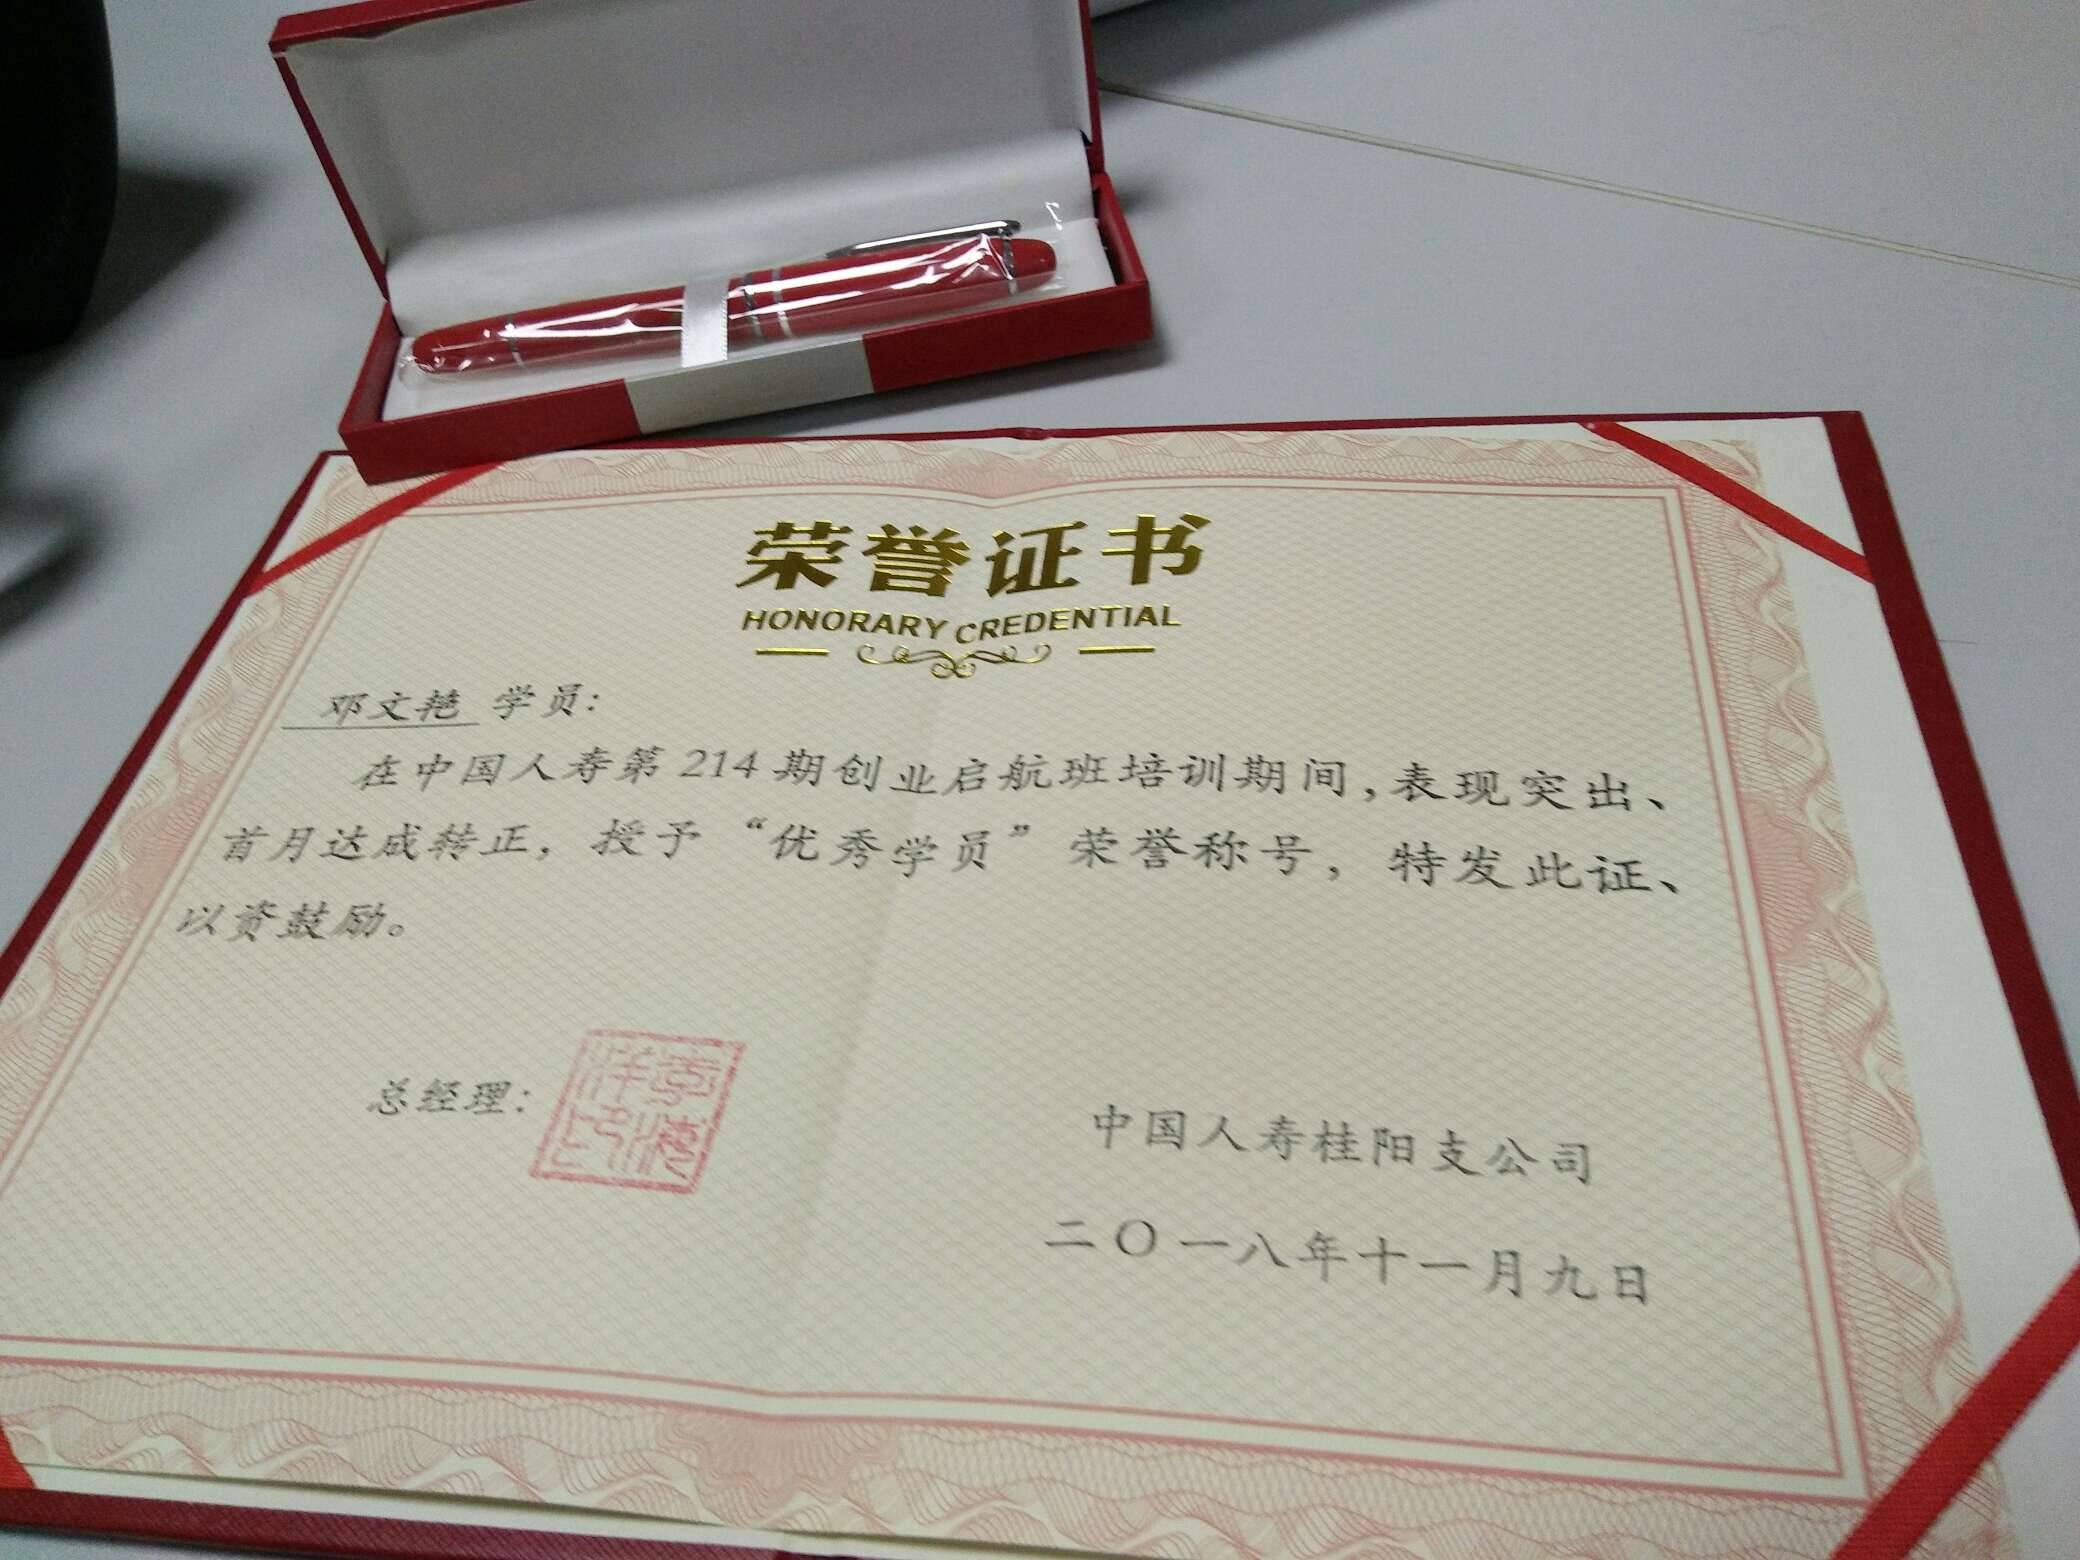 荣誉证书
HONORARY CREDENTIAL
邓文艳 学员:
在中国人寿第214期创业启航班培训期间,表现突出、
首月达成转正,授予“优秀学员”荣誉称号,特发此证、
以资鼓励。
总经理:
中国人寿桂阳支公司
二〇一八年十一月九日